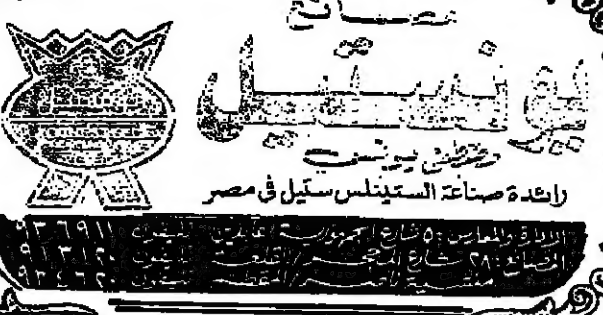 مصانع
يونستيل
مصطفى يونس
رائدة صناعة الستينلس ستيل في مصر
الإدارة والمعارض: ٥ شارع الجمهورية / عابدين تليفون ٩٣٦٩١١
المصانع: ٢٨ شارع المحجر / القلعة تليفون ٩١٣١٢٠
/ المقطم تليفون ٩٣٤٦٢٠